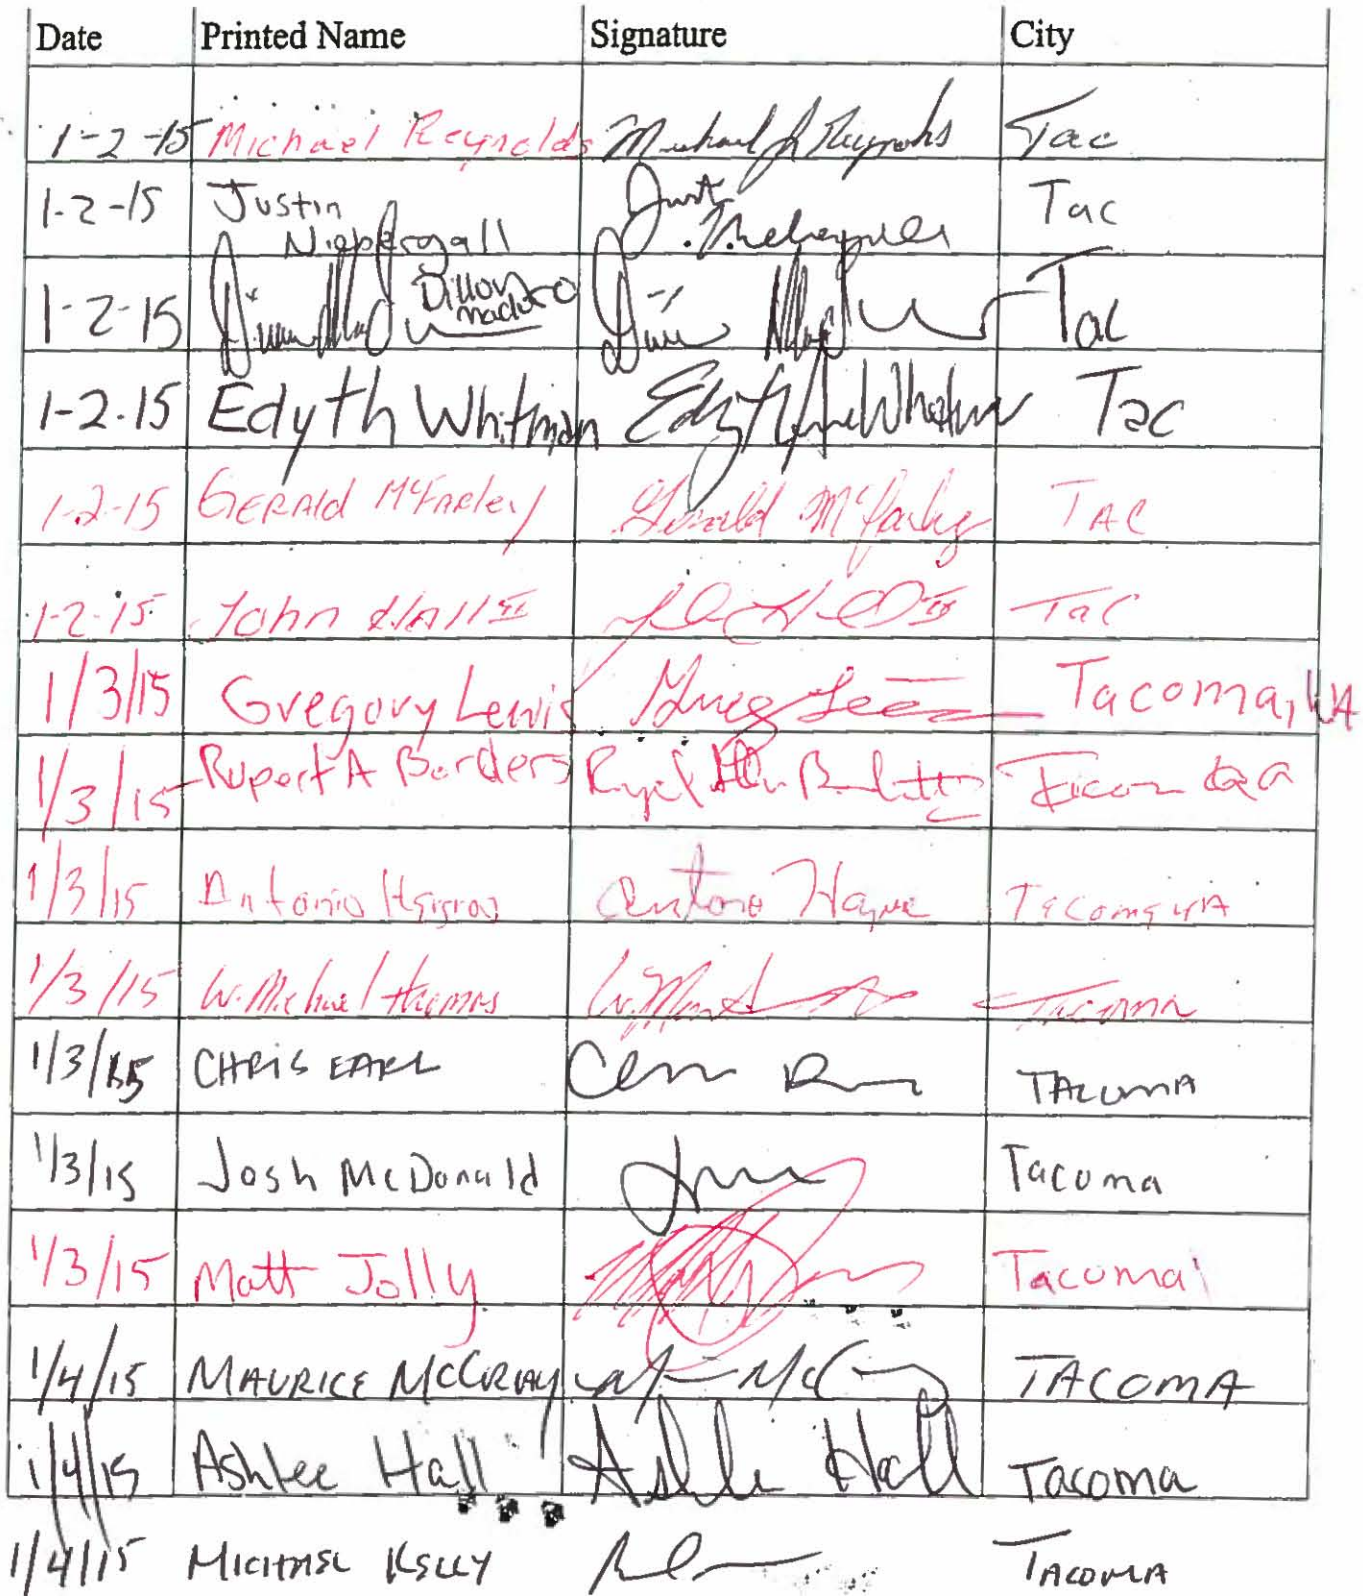 Date Printed Name Signature City
1-2-15 Michael Reynolds Michael J Reynolds Tac
1-2-15 Justin Just Tac
Niebergall
1-2-15 Dillon Tac
Maduro
1-2-15 Edyth Whitman Edyth Whitman Tac
1-2-15 GERALD McFarley Gerald McFarley TAC
1-2-15 John Hall II Tac
1/3/15 Gregory Lewis Greg Tacoma, WA
1/3/15 Rupert A Borders
1/3/15 Antonio Antonio Tacoma WA
1/3/15 W. Michael Thomas Tacoma
1/3/15 CHRIS EARL TACOMA
1/3/15 Josh McDonald Tacoma
1/3/15 Matt Jolly Tacoma
1/4/15 MAURICE McCRAY TACOMA
1/4/15 Ashlee Hall Ashlee Hall Tacoma
1/4/15 MICHAEL KELLY TACOMA